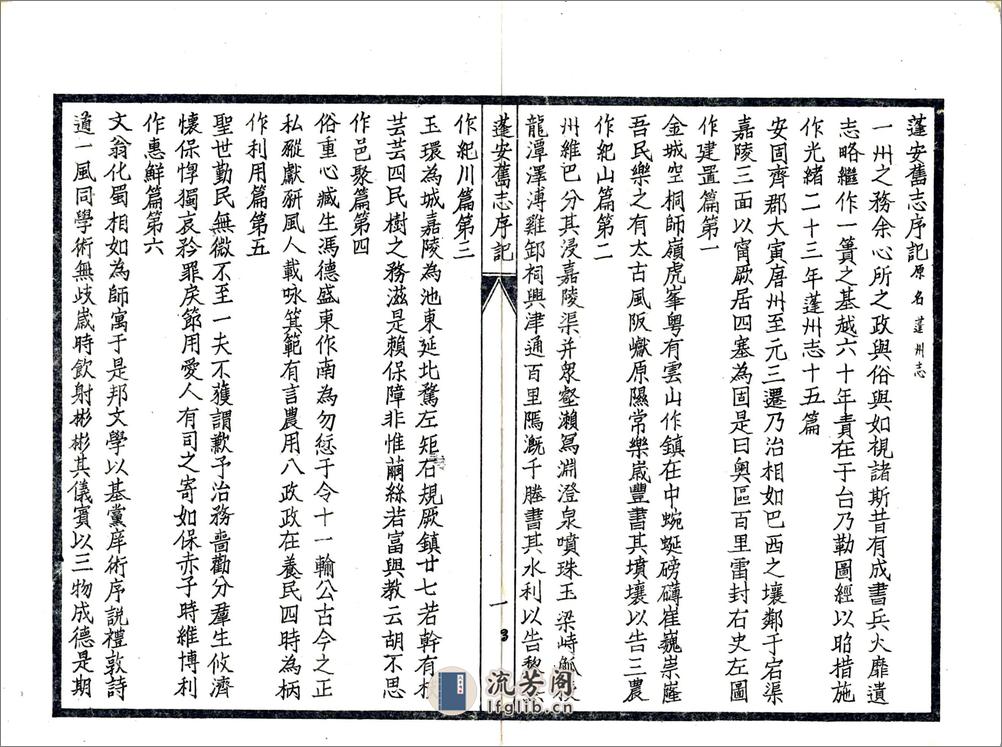 蓬安舊志序記原名蓬州志
一州之務余心所之政與俗與如視諸斯昔有成書兵火靡遺
志略繼作一簣之基越六十年責在于台乃勒圖經以昭措施
作光緒二十三年蓬州志十五篇
安固齊郡大寅唐州至元三遷乃治相如巴西之壤鄰于宕渠
嘉陵三面以甯厥居四塞為固是曰奧區百里雷封右史左圖
作建置篇第一
金城空桐師嶺虎峯粤有雲山作鎮在中蜿蜒磅礴崔巍崇隆
吾民樂之有太古風阪巘原隰常樂嵗豐書其墳壤以告三農
作紀山篇第二
州維巴分其浸嘉陵渠并衆壑瀨寫淵澄泉噴珠玉梁峙觚稜
龍潭澤溥雞卸祠興津通百里隖溉千塍書其水利以告黎
蓬安舊志序記
一
3
作紀川篇第三
玉環為城嘉陵為池東延北騖左矩右規厥鎮廿七若幹有枝
芸芸四民樹之務滋是賴保障非惟繭絲若富與教云胡不思
作邑聚篇第四
俗重心臧生馮德盛東作南為勿愆于令十一輸公古今之正
私豵獻豜風人載咏箕範有言農用八政政在養民四時為柄
作利用篇第五
聖世勤民無微不至一夫不獲謂歉予治務嗇勸分羣生攸濟
懷保惸獨哀矜罪戾節用愛人有司之寄如保赤子時維博利
作惠鮮篇第六
文翁化蜀相如為師寓于是邦文學以基黨庠術序説禮敦詩
遒一風同學術無歧嵗時飲射彬彬其儀賓以三物成德是期
流芳阁
lfglib.cn